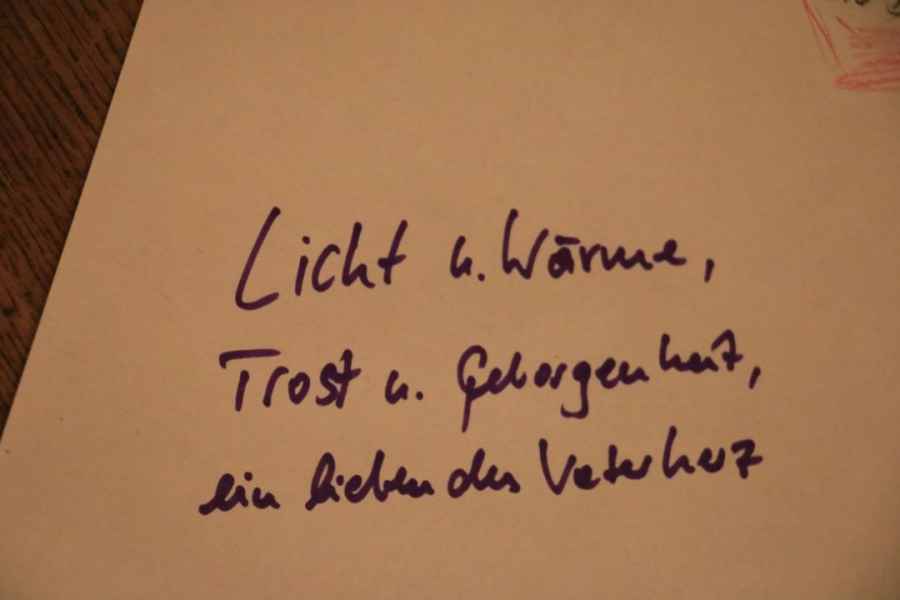 Licht u. Wärme,
Trost u. Geborgenheit,
ein liebendes Vaterherz